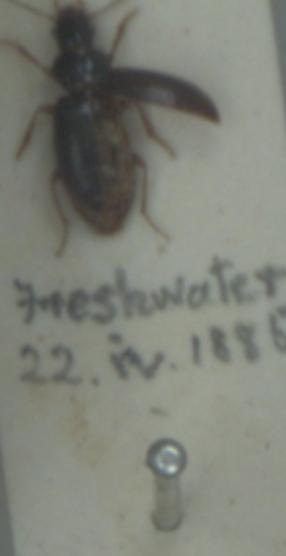 Freshwater
22. iv. 1886